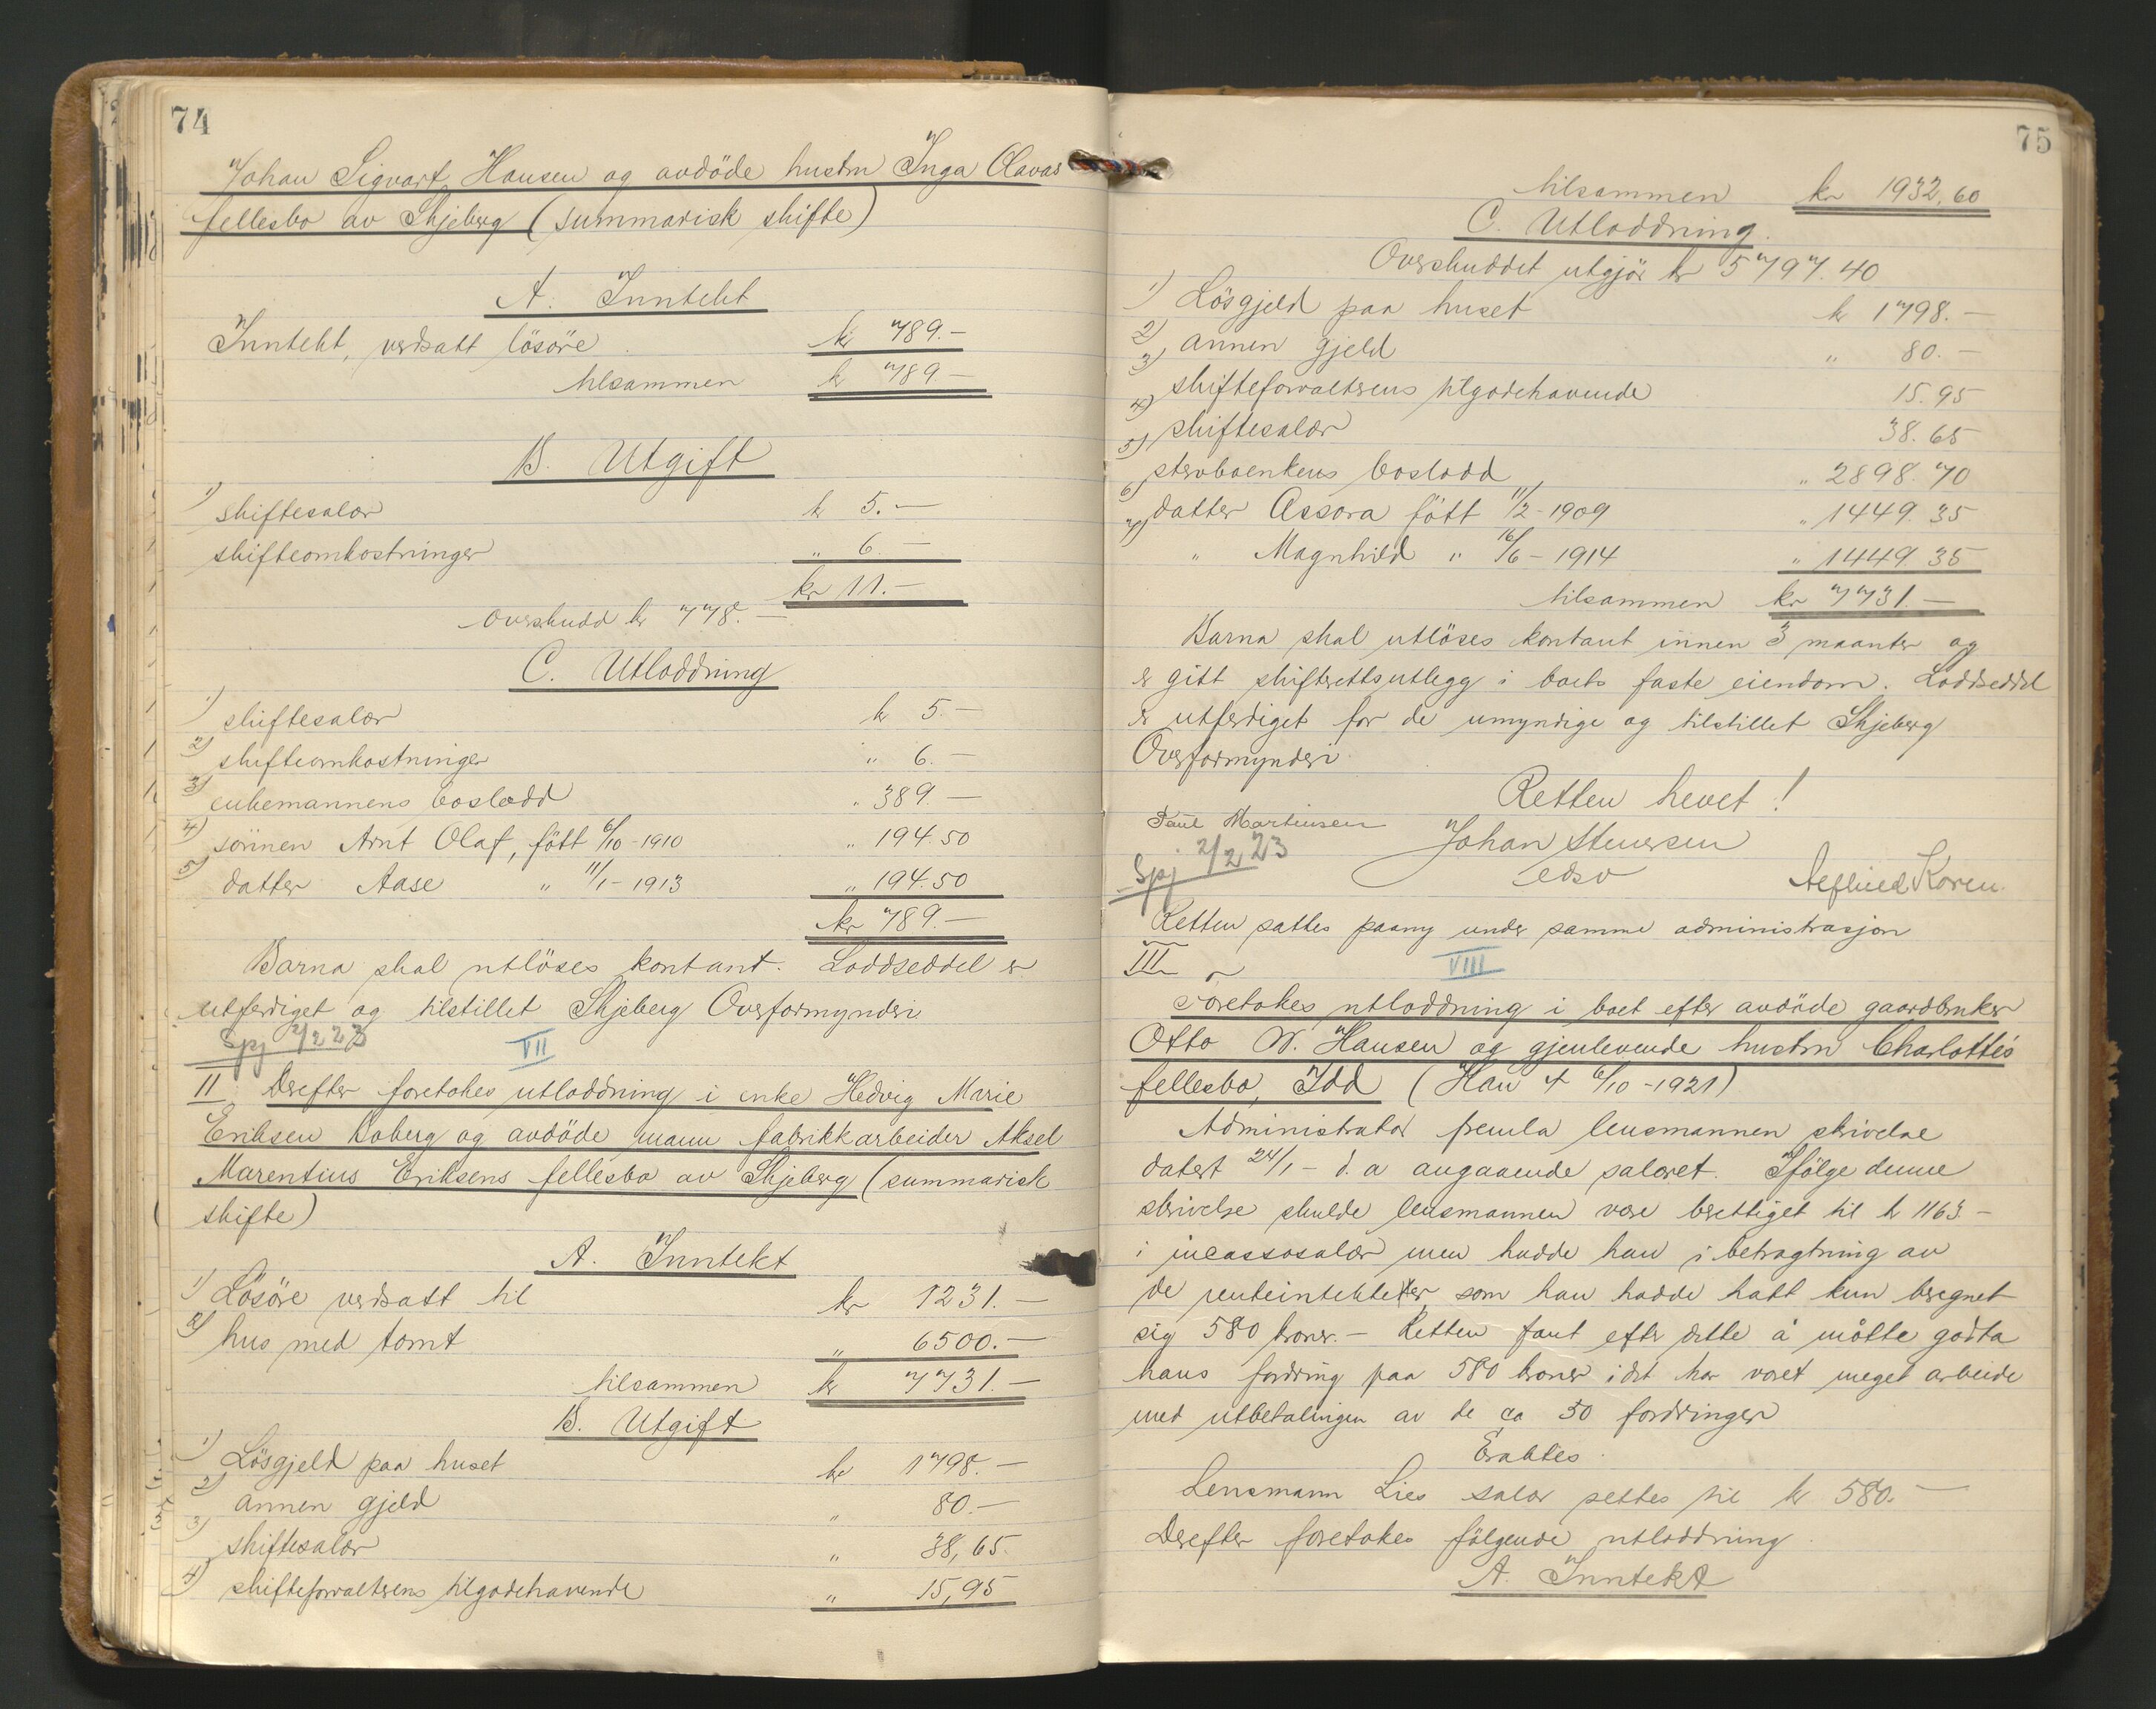 74
Johan Sigvart Hansen og avdöde hustru Inga Olavas
fellesbo av Skjeberg (summarisk skifte)
A. Inntekt
Inntekt, verdsatt lösöre kr 789.-
tilsammen kr 789-
B. Utgift
1) skiftesalær kr 5.-
skifteomkostninger " 6.-
kr 11.-
Overskudd kr 778.-
C. Utloddning
1) skiftesalær kr 5.-
2) skifteomkostninger " 6.-
3) enkemannens boslodd " 389.-
4) sönnen Arnt Olaf, fött 6/10-1910 " 194.50
5) datter Aase " 11/1-1913 " 194.50
kr 789.-
Barna skal utlöses kontant. Loddseddel er
utferdiget og tilstillet Skjeberg Overformynderi
Spj 2/2 23
VII
II Derefter foretokes utloddning i enke Hedvig Marie
Eriksen Boberg og avdöde mann fabrikkarbeider Aksel
Marentius Eriksens fellesbo av Skjeberg (summarisk
skifte)
A. Inntekt
1) Lösöre verdsatt til kr 1231.-
2) hus med tomt " 6500.-
tilsammen kr 7731.-
B. Utgift
1) Lösgjeld paa huset kr 1798.-
2) annen gjeld " 80.-
3) skiftesalær " 38,65
4) skifteforvalterens tilgodehavende " 15,95
75
tilsammen kr 1932,60
C. Utloddning.
Overskuddet utgjör kr 5797.40
1) Lösgjeld paa huset kr 1798.-
2) annen gjeld " 80.-
3) skifteforvalterens tilgodehavende 15.95
4) skiftesalær 38.65
5) stervboenkens boslodd " 2898.70
6) datter Assora fött 11/2-1909 " 1449.35
7) " Magnhild " 16/6-1914 " 1449.35
tilsammen kr 7731.-
Barna skal utlöses kontant innen 3 maanter og
er gitt skifterettsutlegg i boets faste eiendom. Loddseddel
er utferdiget for de umyndige og tilstillet Skjeberg
Overformynderi.
Retten hevet!
Paul Martinsen Johan Stenersen
Spj 2/2 23
edsv Koren.
Retten sattes paany under samme administrasjon
III
VIII
Foretokes utloddning i boet efter avdöde gaardbruker
Otto W. Hansen og gjenlevende hustru Charlotte's
fellesbo, Idd (Han † 6/10-1921)
Administrator fremla lensmannen skrivelse
datert 24/1- d.a angaaende salæret. Ifölge denne
skrivelse skulde lensmannen være berettiget til kr 1163.-
i incassosalær men hadde han i betragtning av
de renteintekter som han hadde hatt kun beregnet
sig 580 kroner.- Retten fant efter dette å måtte godta
hans fordring paa 580 kroner idet har været meget arbeide
med utbetalingen av de ca 50 fordringer
Eraktes
Lensmann Lies salær settes til kr 580.-
Derefter foretokes fölgende utloddning.
A. Inntekt